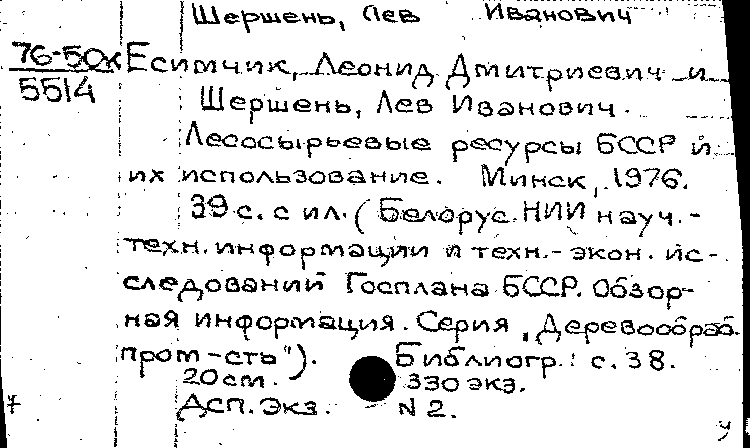 Шершень, Лев Иванович
76-50к Есимчик, Леонид Дмитриевич и
5514 Шершень, Лев Иванович.
Лесосырьевые ресурсы БССР и
их использование. Минск, 1976.
39 с. с ил. (Белорус. НИИ науч.-
техн. информации и техн.-экон. ис-
следований Госплана БССР. Обзор-
ная информация. Серия „Деревообраб.
пром-сть"). Библиогр.: с. 38.
20 см. 330 экз.
ДСП. Экз. N 2.